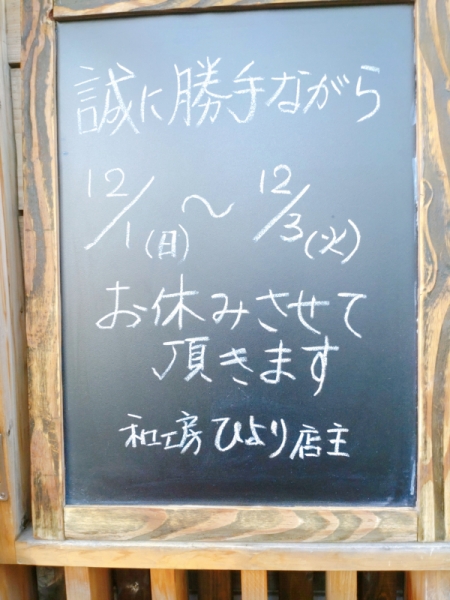 誠に勝手ながら
12/1(日)～12/3(火)
お休みさせて
頂きます
和工房ひより店主